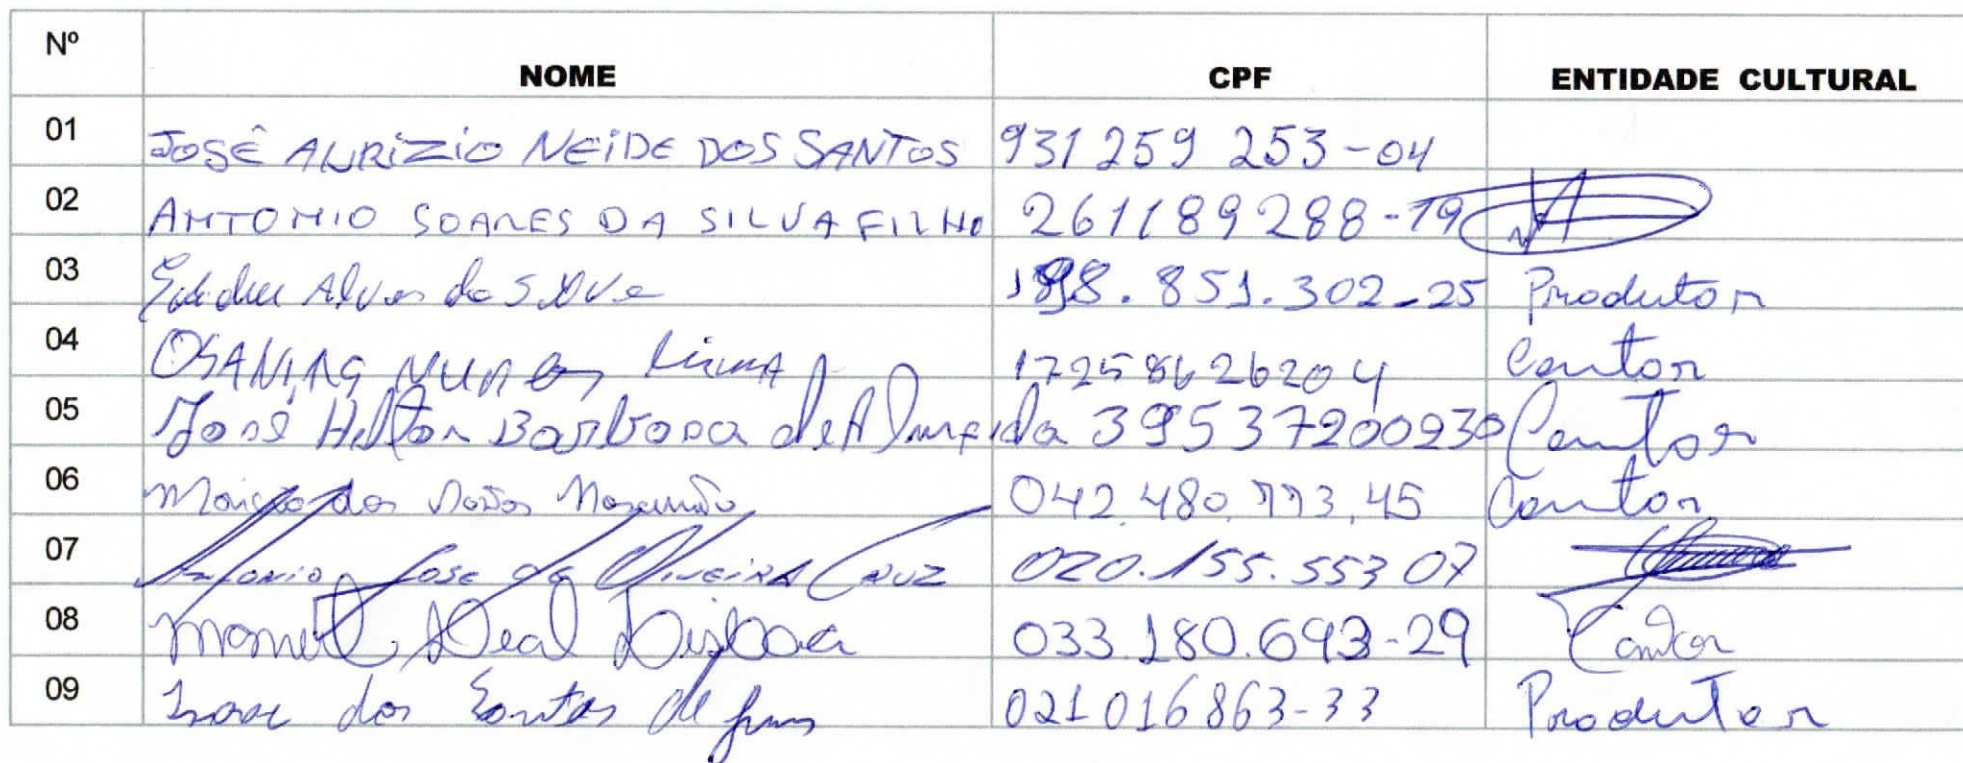 Nº NOME CPF ENTIDADE CULTURAL
01 JOSÊ AURIZIO NEIDE DOS SANTOS 931 259 253-04
02 ANTONIO SOARES DA SILVA FILHO 261189288-19
03 Alves da Silva 198.851.302-25 Produtor
04 Nunes Lima 17258626204 Cantor
05 José Hilton Barbosa de Almeida 39537200230 Cantor
06 dos Nascimento 042.480.773,45 Cantor
07 Antonio Jose de Oliveira Cruz 020.155.553 07
08 Manoel Leal Lisboa 033.180.693-29 Cantor
09 Isaac dos Santos de 021016863-33 Produtor